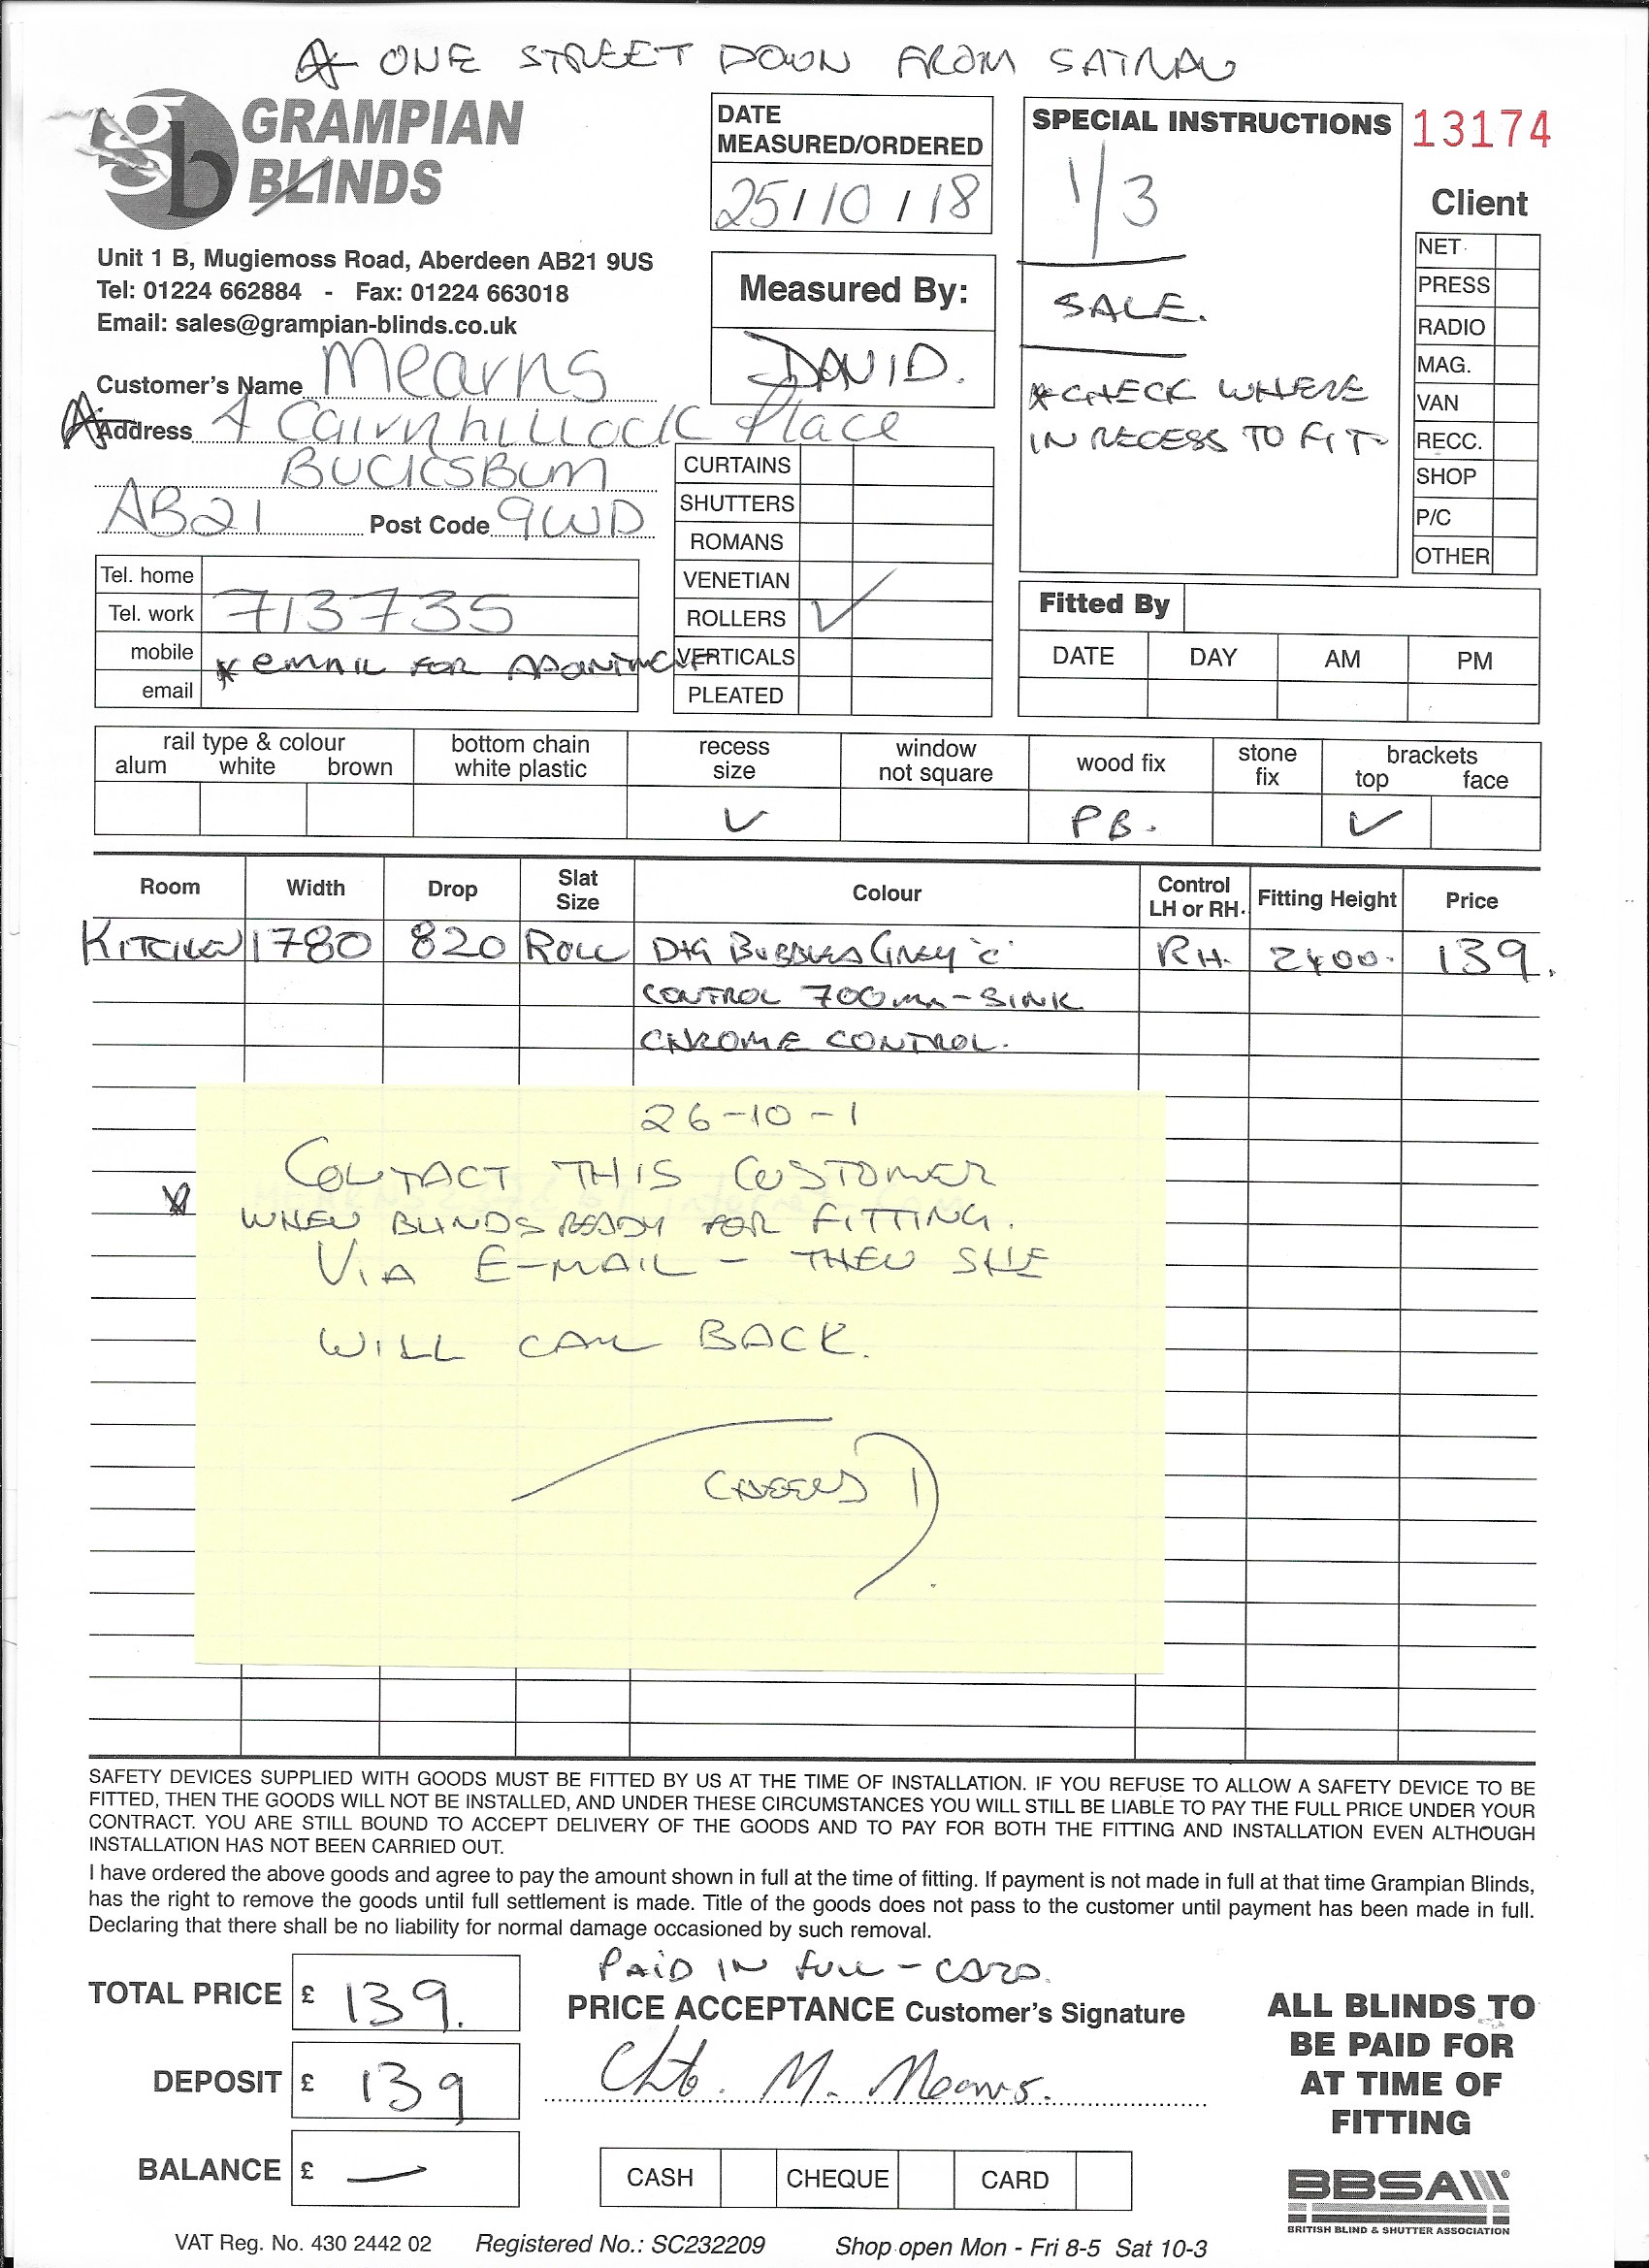 ONE STREET DOWN FROM SATNAV
gb GRAMPIAN
BLINDS
Unit 1 B, Mugiemoss Road, Aberdeen AB21 9US
Tel: 01224 662884 - Fax: 01224 663018
Email: sales@grampian-blinds.co.uk
DATE
MEASURED/ORDERED
25/10/18
Measured By:
DAVID.
SPECIAL INSTRUCTIONS
1/3
SALE.
*CHECK WHERE
IN RECESS TO FIT
13174
Client
NET
PRESS
RADIO
MAG.
VAN
RECC.
SHOP
P/C
OTHER
Customer's Name Mearns
Address 4 Cairnhillock Place
BUCKSBURN
AB21 Post Code 9WD
Tel. home
Tel. work 713735
mobile
* EMAIL FOR
email
CURTAINS
SHUTTERS
ROMANS
VENETIAN
ROLLERS ✓
VERTICALS
PLEATED
Fitted By
DATE DAY AM PM
rail type & colour
alum white brown
bottom chain
white plastic
recess
size
window
not square
wood fix
stone
fix
brackets
top face
✓ PB. ✓
Room Width Drop Slat Size Colour Control LH or RH. Fitting Height Price
KITCHEN 1780 820 ROLL D+G BUBBLES GREY 'C' RH. 2400. 139.
CONTROL 700mm - SINK
CHROME CONTROL.
26-10-1
CONTACT THIS CUSTOMER
WHEN BLINDS READY FOR FITTING.
VIA E-MAIL - THEN SHE
WILL CALL BACK.
CHEERS D.
SAFETY DEVICES SUPPLIED WITH GOODS MUST BE FITTED BY US AT THE TIME OF INSTALLATION. IF YOU REFUSE TO ALLOW A SAFETY DEVICE TO BE
FITTED, THEN THE GOODS WILL NOT BE INSTALLED, AND UNDER THESE CIRCUMSTANCES YOU WILL STILL BE LIABLE TO PAY THE FULL PRICE UNDER YOUR
CONTRACT. YOU ARE STILL BOUND TO ACCEPT DELIVERY OF THE GOODS AND TO PAY FOR BOTH THE FITTING AND INSTALLATION EVEN ALTHOUGH
INSTALLATION HAS NOT BEEN CARRIED OUT.
I have ordered the above goods and agree to pay the amount shown in full at the time of fitting. If payment is not made in full at that time Grampian Blinds,
has the right to remove the goods until full settlement is made. Title of the goods does not pass to the customer until payment has been made in full.
Declaring that there shall be no liability for normal damage occasioned by such removal.
PAID IN FULL - CARD.
TOTAL PRICE £ 139.
PRICE ACCEPTANCE Customer's Signature
M. Mearns.
DEPOSIT £ 139
BALANCE £ —
CASH CHEQUE CARD
ALL BLINDS TO
BE PAID FOR
AT TIME OF
FITTING
BBSA
BRITISH BLIND & SHUTTER ASSOCIATION
VAT Reg. No. 430 2442 02 Registered No.: SC232209 Shop open Mon - Fri 8-5 Sat 10-3